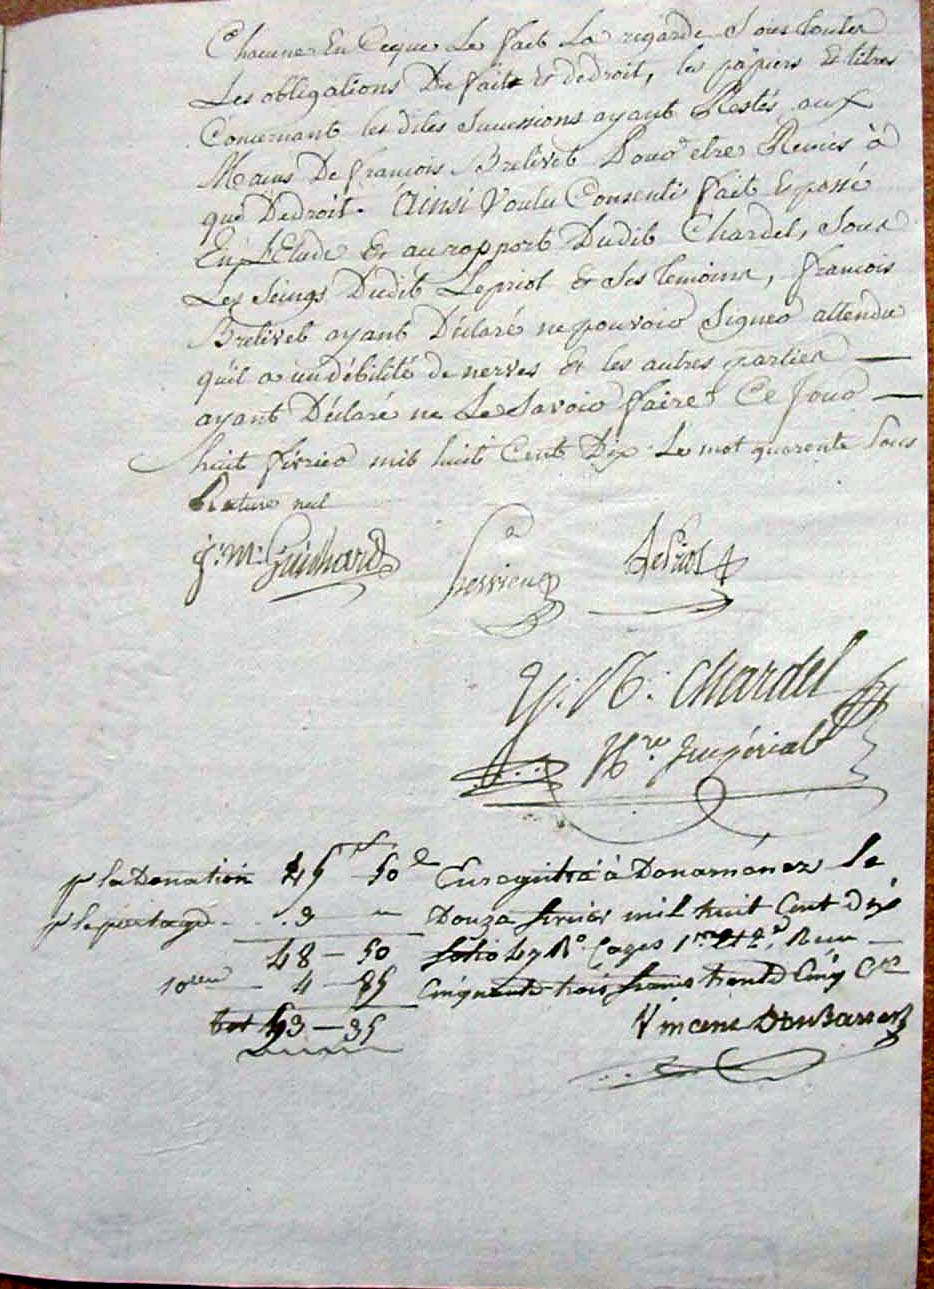 Chacune En Ceque Le fait La regarde Sous toutes
Les obligations De fait & dedroit, les papiers & titres
Concernant les dites Successions ayant Restés aux
Mains De francois Brelivet Pour etre Remis à
qui Dedroit. Ainsi Voulu Consenti fait & passé
En L'Etude & au rapport Dudit Chardel, Sous
Les Seings Dudit Lepriol & Ses temoins, francois
Brelivet ayant Déclaré ne pouvoir Signer attendu
qu'il a un débilité de nerves & les autres parties
ayant Déclaré ne Le Savoir faire Ce Jour
huit février mil huit Cent Dix. Le mot quarente Sous
Rature nul
J. M. Guichard Lepriol
Y. N. Chardel
Nre Impérial
pr la Donation 45 50 Enregistré à Douarnenez le
pr le partage 3 " Douze fevrier mil huit Cent dix
48 - 50 folio 47 Ro. Cases 1re et 2e. Recu
10eme 4 - 85 Cinquante trois francs trente Cinq Ces
tot 53 - 35 Vincent